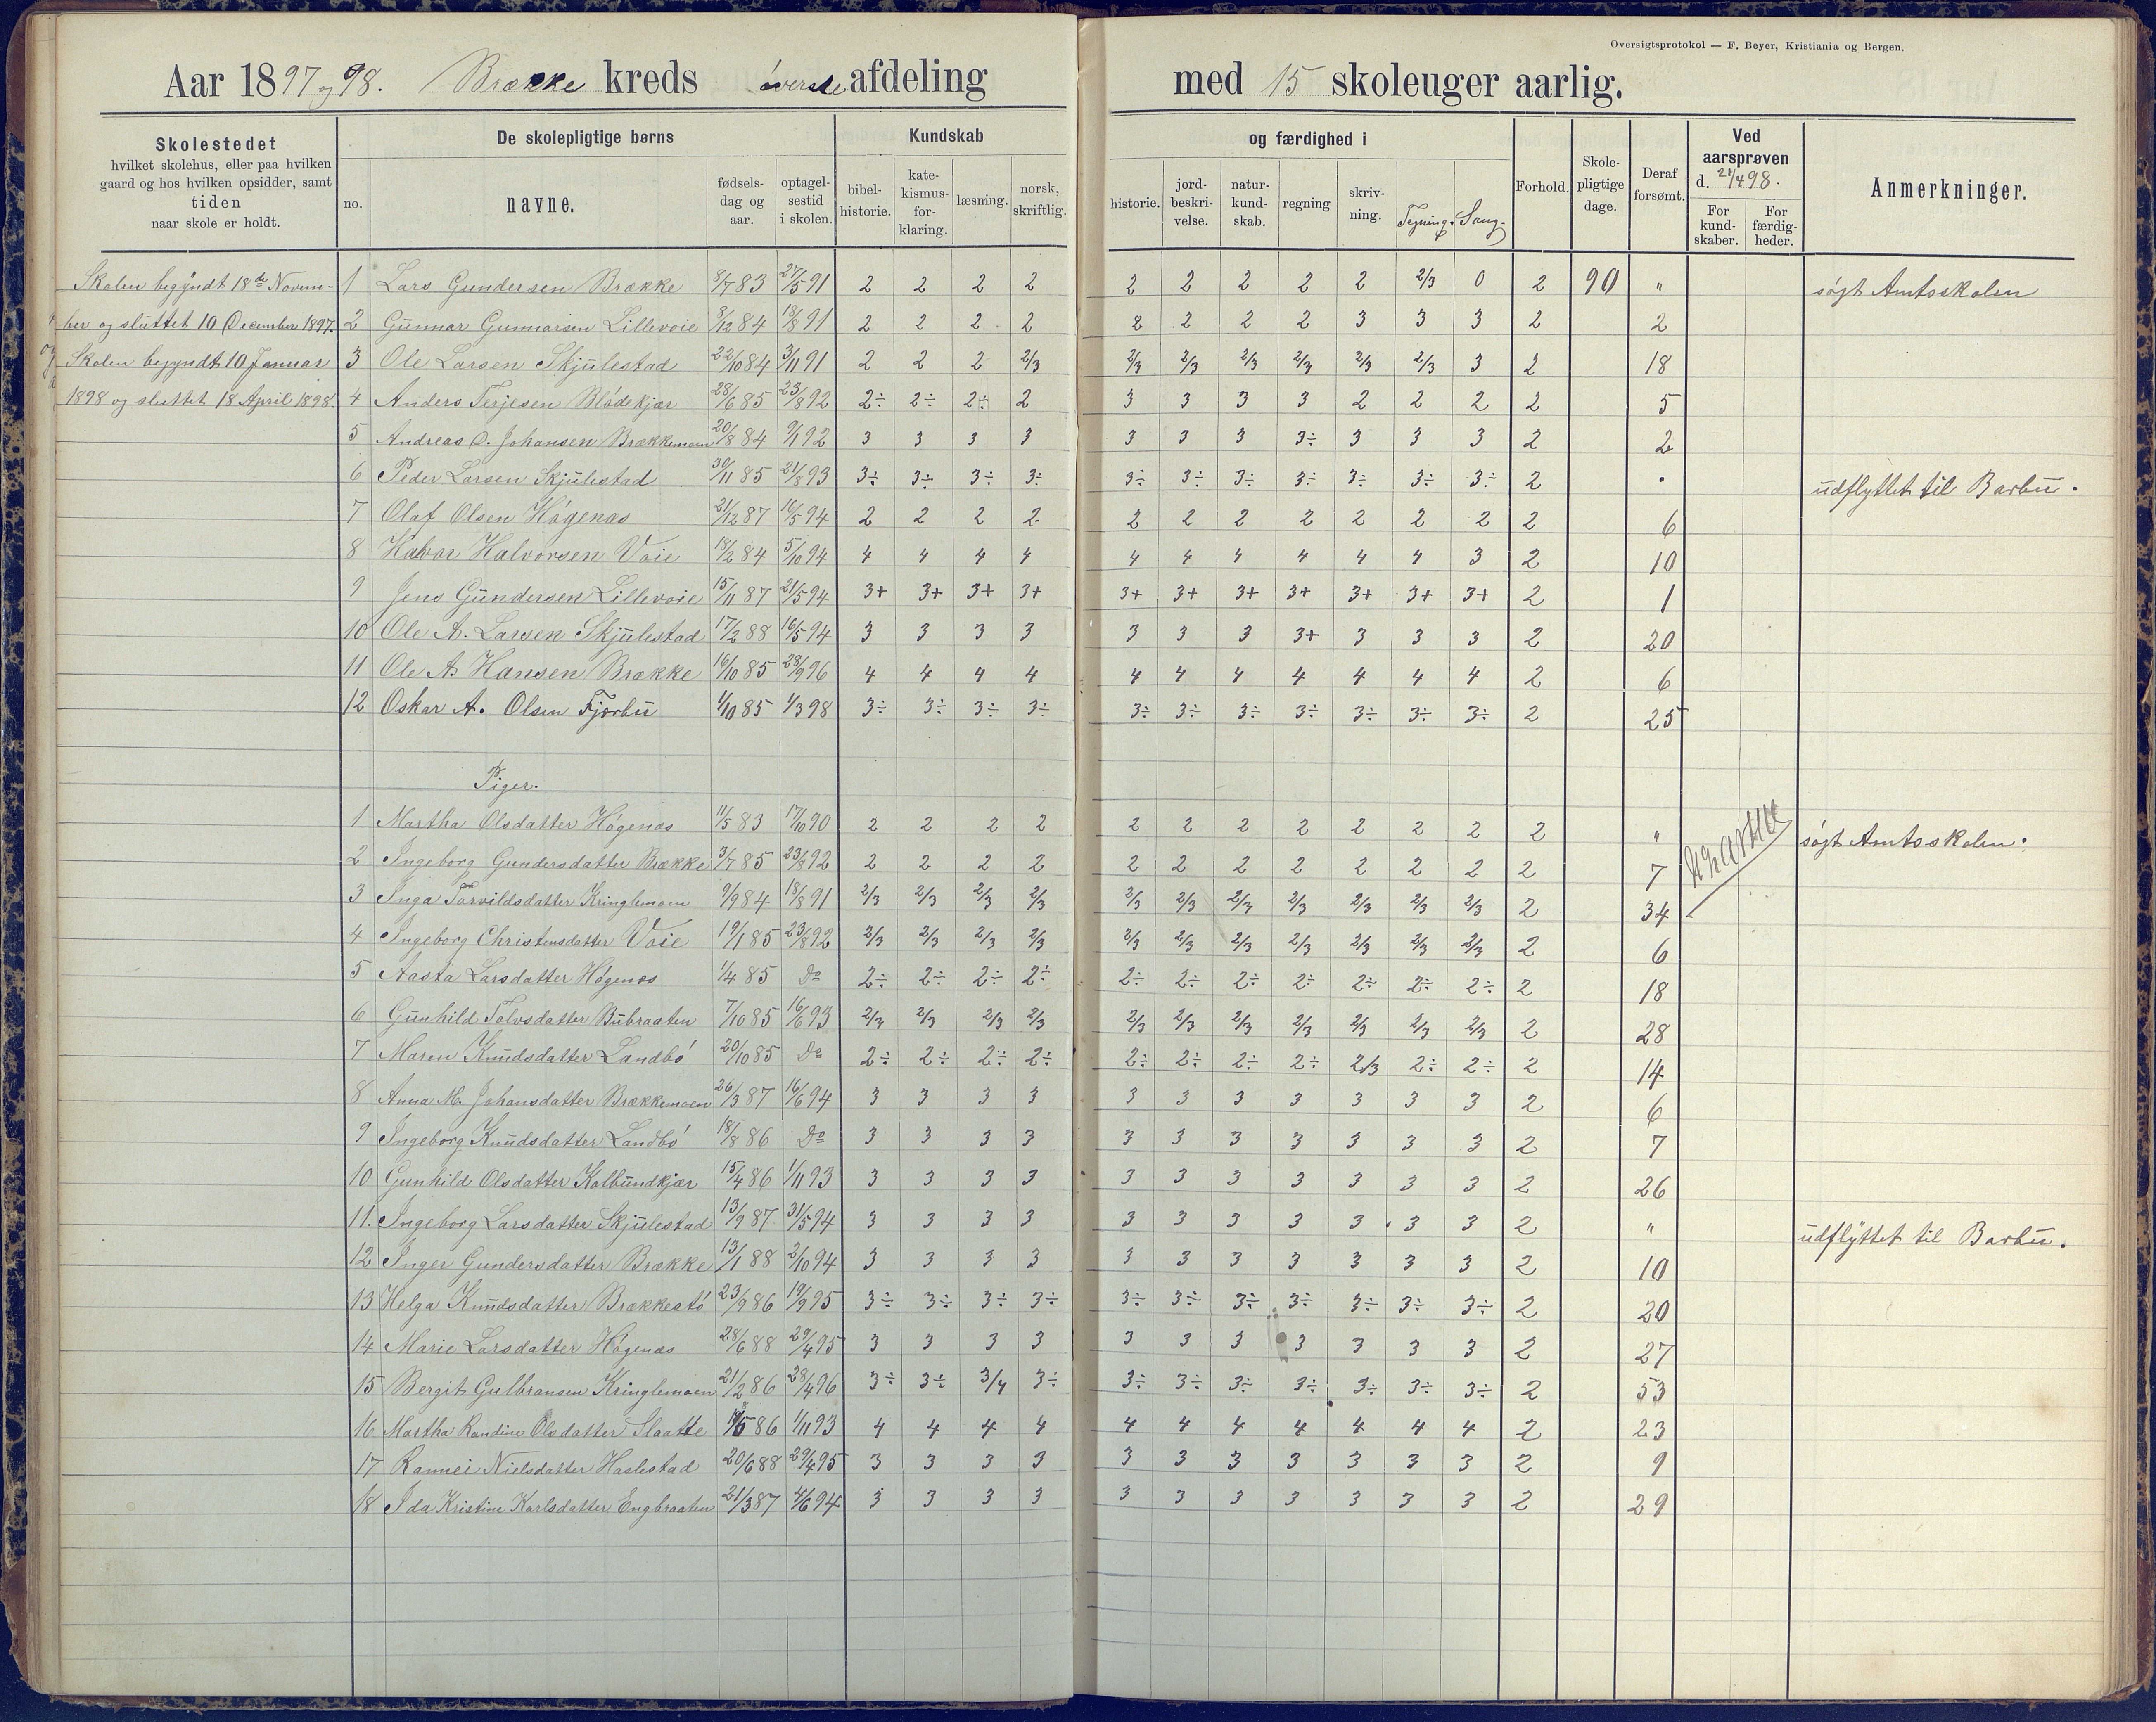 Oversigtsprotokol — F. Beyer, Kristiania og Bergen.
Aar 1897 og 98. Brække kreds øverste afdeling med 15 skoleuger aarlig.
Skolestedet hvilket skolehus, eller paa hvilken gaard og hos hvilken opsidder, samt tiden naar skole er holdt.
De skolepligtige børns
no. navne. fødselsdag og aar. optagelsestid i skolen.
Kundskab og færdighed i
bibelhistorie. katekismusforklaring. læsning. norsk, skriftlig. historie. jordbeskrivelse. naturkundskab. regning skrivning. Tegning. Sang.
Forhold. Skolepligtige dage. Deraf forsømt. Ved aarsprøven d. 21/4 98. For kundskaber. For færdigheder. Anmerkninger.
Skolen begyndt 18de Novem-
ber og sluttet 10 December 1897.
og Skolen begyndt 10 Januar
1898 og sluttet 18 April 1898.
1 Lars Gundersen Brække 8/7 83 27/5 91 2 2 2 2 2 2 2 2 2 2/3 0 2 90 " søgt Amtsskolen
2 Gunnar Gunnarsen Lillevoie 8/12 84 18/8 91 2 2 2 2 2 2 2 2 3 3 3 2 2
3 Ole Larsen Skjulestad 22/10 84 3/11 91 2 2 2 2/3 2/3 2/3 2/3 2/3 2/3 2/3 3 2 18
4 Anders Terjesen Blødekjær 28/6 85 23/8 92 2÷ 2÷ 2÷ 2 3 3 3 3 2 2 2 2 5
5 Andreas O. Johansen Brækkemoen 20/8 84 9/1 92 3 3 3 3 3 3 3 3÷ 3 3 3 2 2
6 Peder Larsen Skjulestad 30/11 85 21/8 93 3÷ 3÷ 3÷ 3÷ 3÷ 3÷ 3÷ 3÷ 3÷ 3÷ 3÷ 2 . udflyttet til Barbu.
7 Olaf Olsen Høgenæs 21/12 87 16/5 94 2 2 2 2 2 2 2 2 2 2 2 2 6
8 Halvor Halvorsen Voie 18/2 84 5/10 94 4 4 4 4 4 4 4 4 4 4 3 2 10
9 Jens Gundersen Lillevoie 15/11 87 21/5 94 3+ 3+ 3+ 3+ 3+ 3+ 3+ 3+ 3+ 3+ 3+ 2 1
10 Ole A. Larsen Skjulestad 17/2 88 16/5 94 3 3 3 3 3 3 3 3+ 3 3 3 2 20
11 Ole A. Hansen Brække 16/10 85 28/9 96 4 4 4 4 4 4 4 4 4 4 4 2 6
12 Oskar A. Olsen Fjørbu 1/10 85 1/3 98 3÷ 3÷ 3÷ 3÷ 3÷ 3÷ 3÷ 3÷ 3÷ 3÷ 3÷ 2 25
Piger.
1 Martha Olsdatter Høgenæs 11/5 83 17/10 90 2 2 2 2 2 2 2 2 2 2 2 2 " søgt Amtsskolen.
2 Ingeborg Gundersdatter Brække 3/7 85 23/8 92 2 2 2 2 2 2 2 2 2 2 2 2 7
3 Inga Torvildsdatter Kringlemoen 9/9 84 18/8 91 2/3 2/3 2/3 2/3 2/3 2/3 2/3 2/3 2/3 2/3 2/3 2 34
4 Ingeborg Christensdatter Voie 19/1 85 23/8 92 2/3 2/3 2/3 2/3 2/3 2/3 2/3 2/3 2/3 2/3 2/3 2 6
5 Aasta Larsdatter Høgenæs 1/4 85 Do 2÷ 2÷ 2÷ 2÷ 2÷ 2÷ 2÷ 2÷ 2÷ 2÷ 2÷ 2 18
6 Gunhild Tolvsdatter Bubraaten 7/10 85 16/6 93 2/3 2/3 2/3 2/3 2/3 2/3 2/3 2/3 2/3 2/3 2/3 2 28
7 Maren Knudsdatter Landbø 20/10 85 Do 2÷ 2÷ 2÷ 2÷ 2÷ 2÷ 2÷ 2÷ 2/3 2÷ 2÷ 2 14
8 Anna M. Johansdatter Brækkemoen 26/3 87 16/6 94 3 3 3 3 3 3 3 3 3 3 3 2 6
9 Ingeborg Knudsdatter Landbø 18/8 86 Do 3 3 3 3 3 3 3 3 3 3 3 2 7
10 Gunhild Olsdatter Kalbundkjær 15/4 86 1/11 93 3 3 3 3 3 3 3 3 3 3 3 2 26
11. Ingeborg Larsdatter Skjulestad 13/9 87 31/5 94 3 3 3 3 3 3 3 3 3 3 3 2 " udflyttet til Barbu.
12 Inger Gundersdatter Brække 13/1 88 2/10 94 3 3 3 3 3 3 3 3 3 3 3 2 10
13 Helga Knudsdatter Brækkestø 23/9 86 19/9 95 3÷ 3÷ 3÷ 3÷ 3÷ 3÷ 3÷ 3÷ 3÷ 3÷ 3÷ 2 20
14 Marie Larsdatter Høgenæs 28/6 88 29/4 95 3 3 3 3 3 3 3 3 3 3 3 2 27
15 Bergit Gulbransen Kringlemoen 21/2 86 28/4 96 3÷ 3÷ 3/4 3÷ 3÷ 3÷ 3÷ 3÷ 3÷ 3÷ 3÷ 2 53
16 Martha Randine Olsdatter Slaatte 86 1/11 93 4 4 4 4 4 4 4 4 4 4 4 2 23
17 Rannei Nielsdatter Haslestad 20/6 88 29/4 95 3 3 3 3 3 3 3 3 3 3 3 2 9
18 Ida Kristine Karlsdatter Engbraaten 21/3 87 4/6 94 3 3 3 3 3 3 3 3 3 3 3 2 29